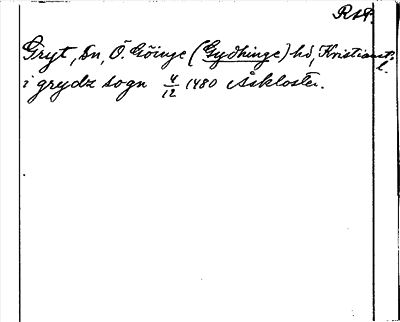 RAP.
Gryt, sn, Ö. Göinge (Gydhinge) hd, Kristianst. l.
i grydz sogn 4/12 1480 Åskloster.